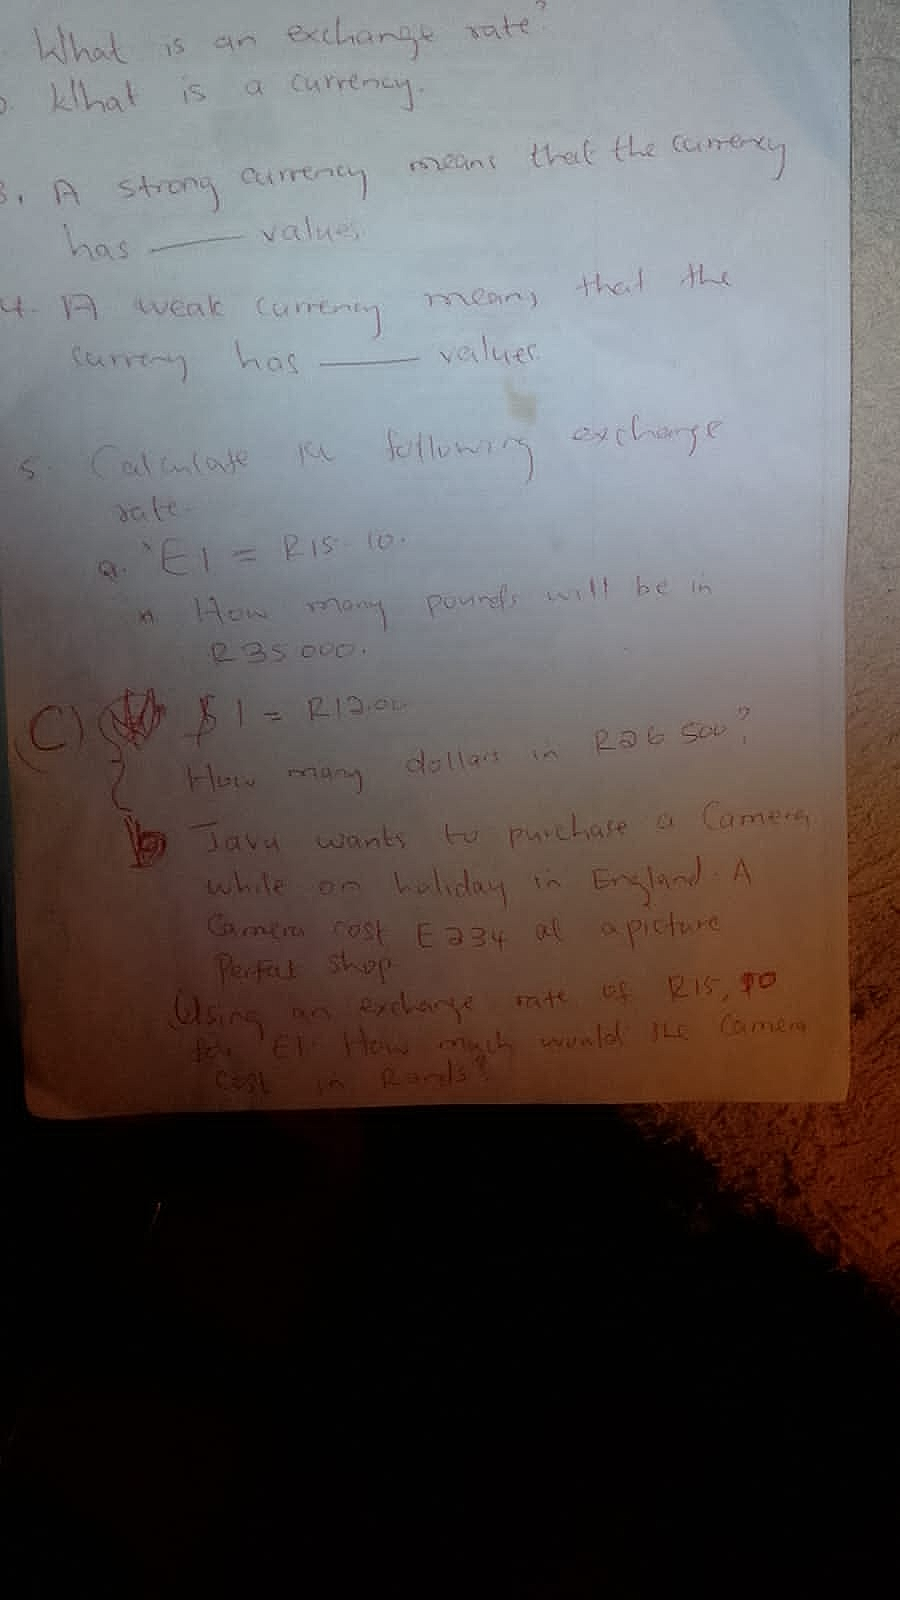 What is an exchange rate?
. What is a currency.
3. A strong currency means that the currency
has ___ values.
4. A weak currency means that the
curreny has ___ values.
5. Calculate the following exchange
rate.
a. E1 = R15.10.
How many pounds will be in
R35 000.
C) $1 = R12.00
How many dollars in R26 500?
b Javu wants to purchase a Camera
while on holiday in England. A
Camera cost E234 at a picture
Perfat shop
Using an exchange rate of R15,10
for E1. How much would the Camera
cost in Rands?